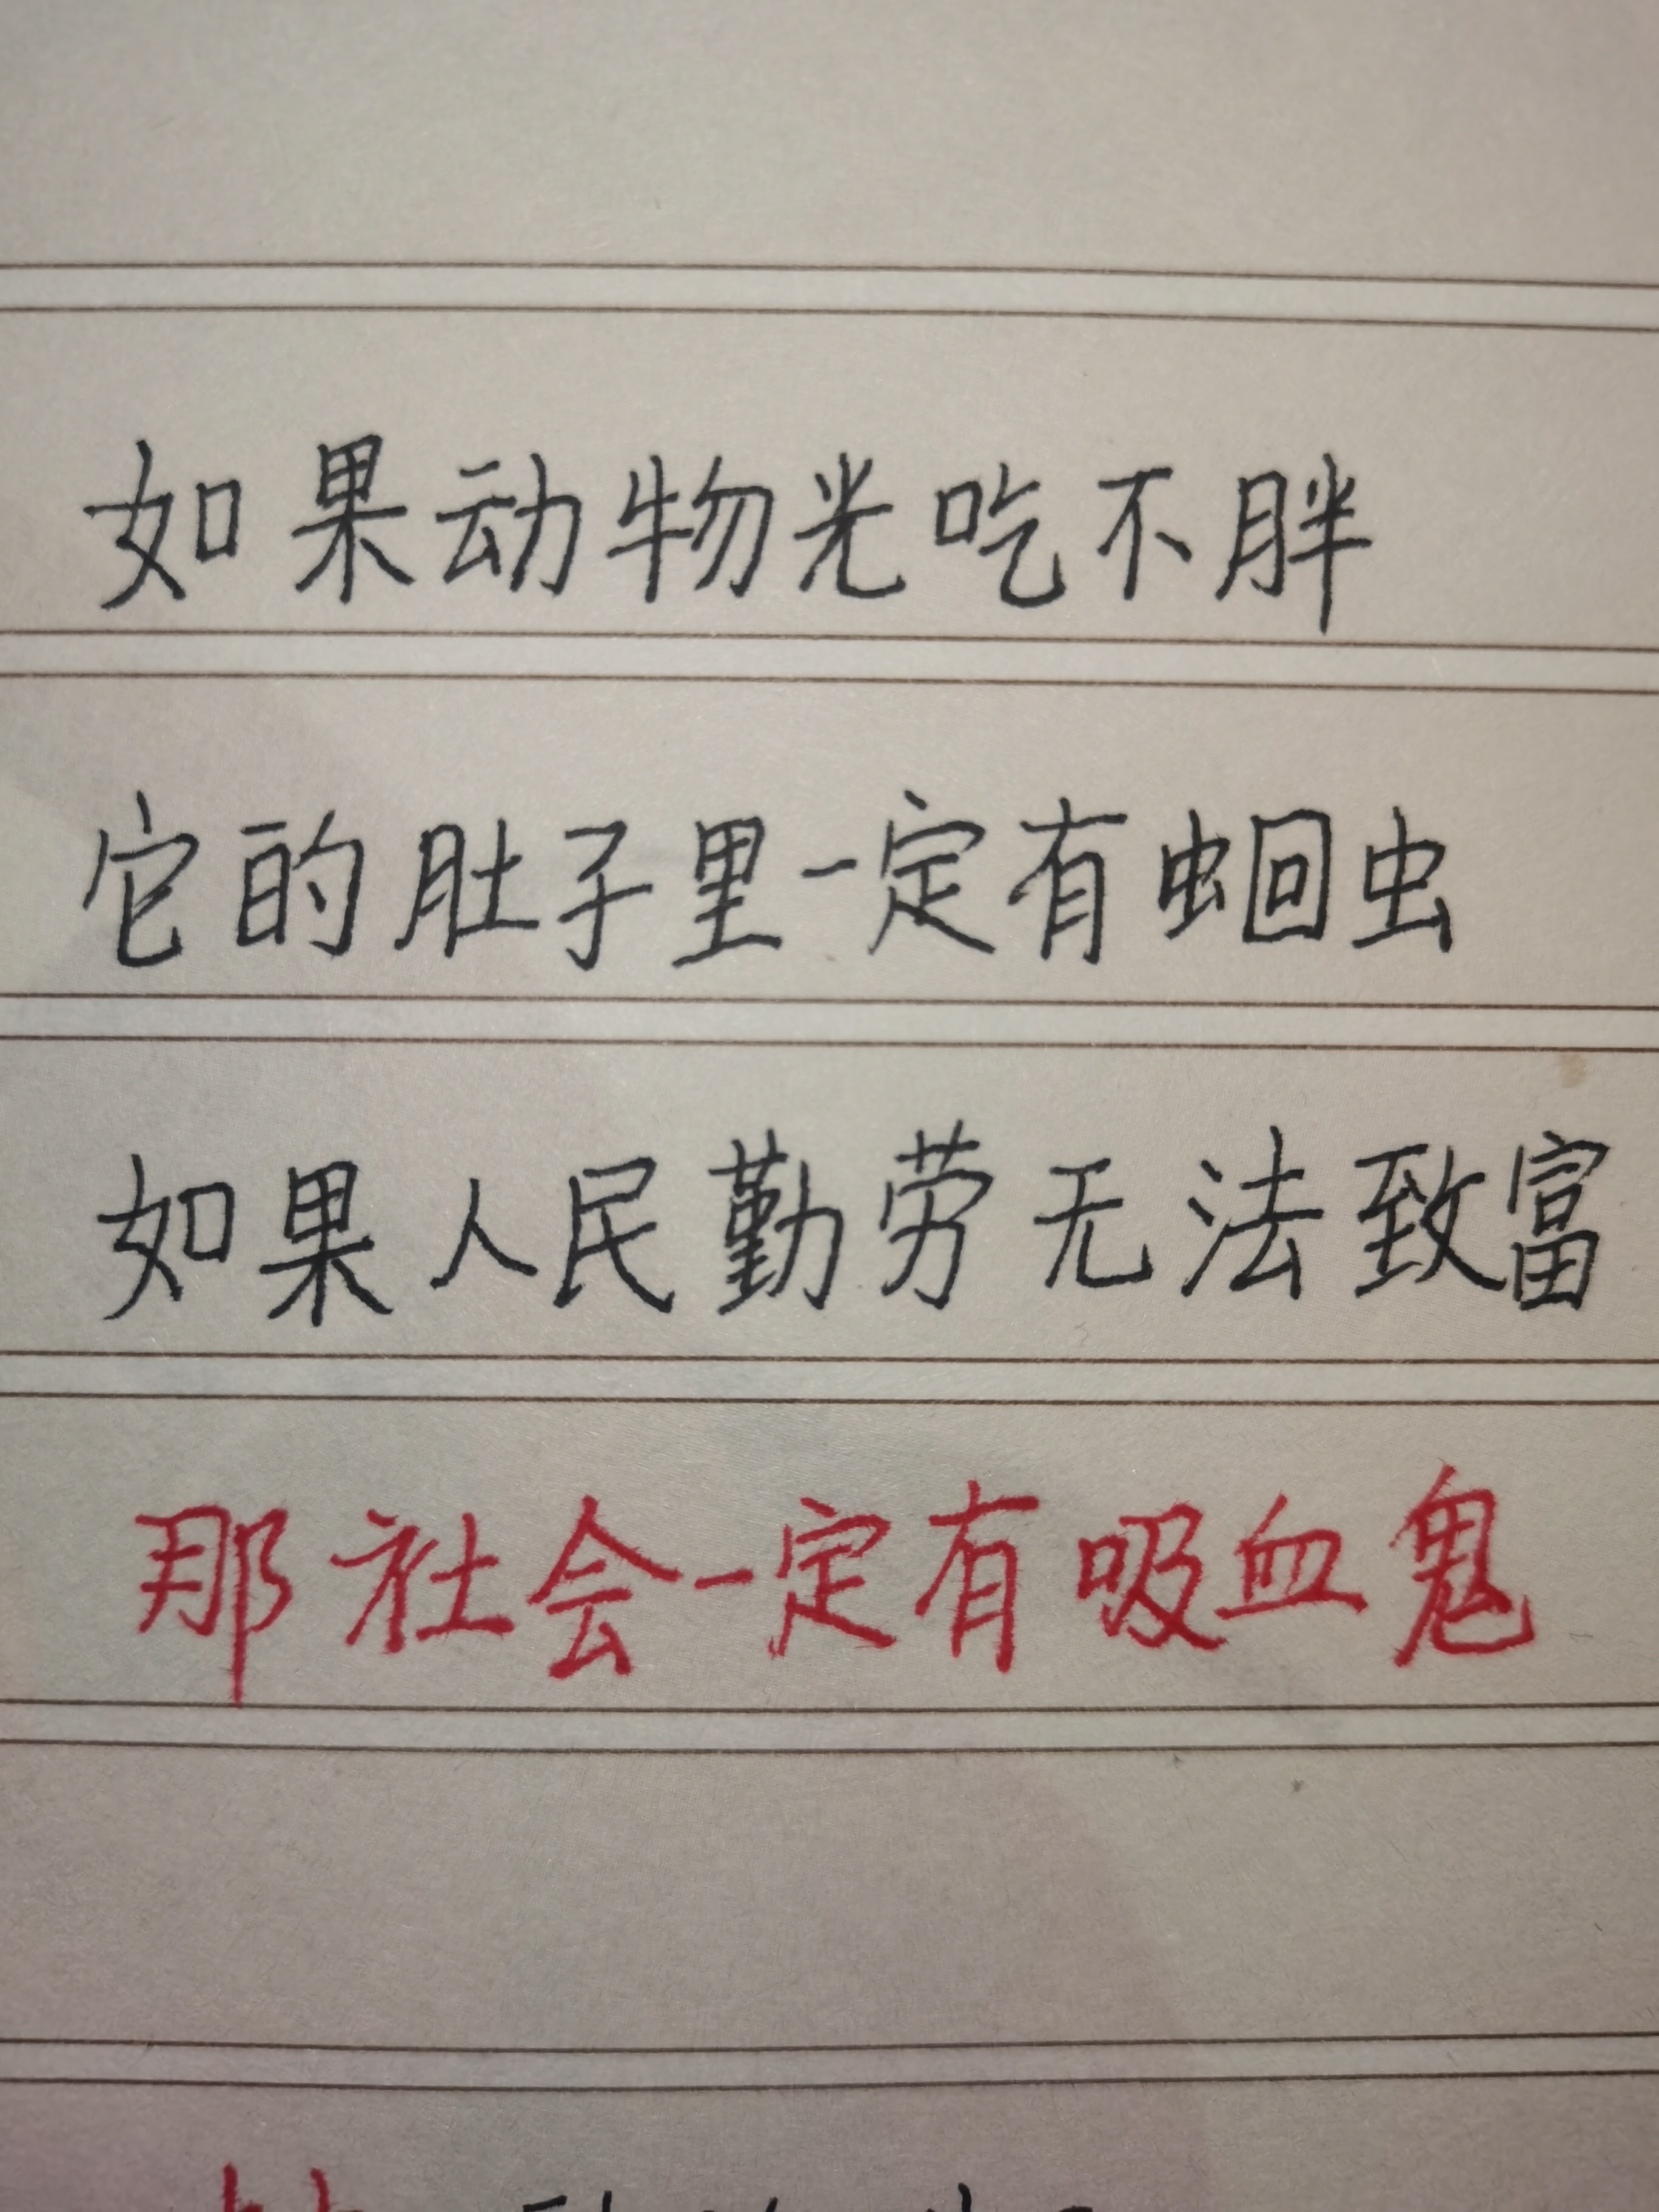 如果动物光吃不胖
它的肚子里一定有蛔虫
如果人民勤劳无法致富
那社会一定有吸血鬼